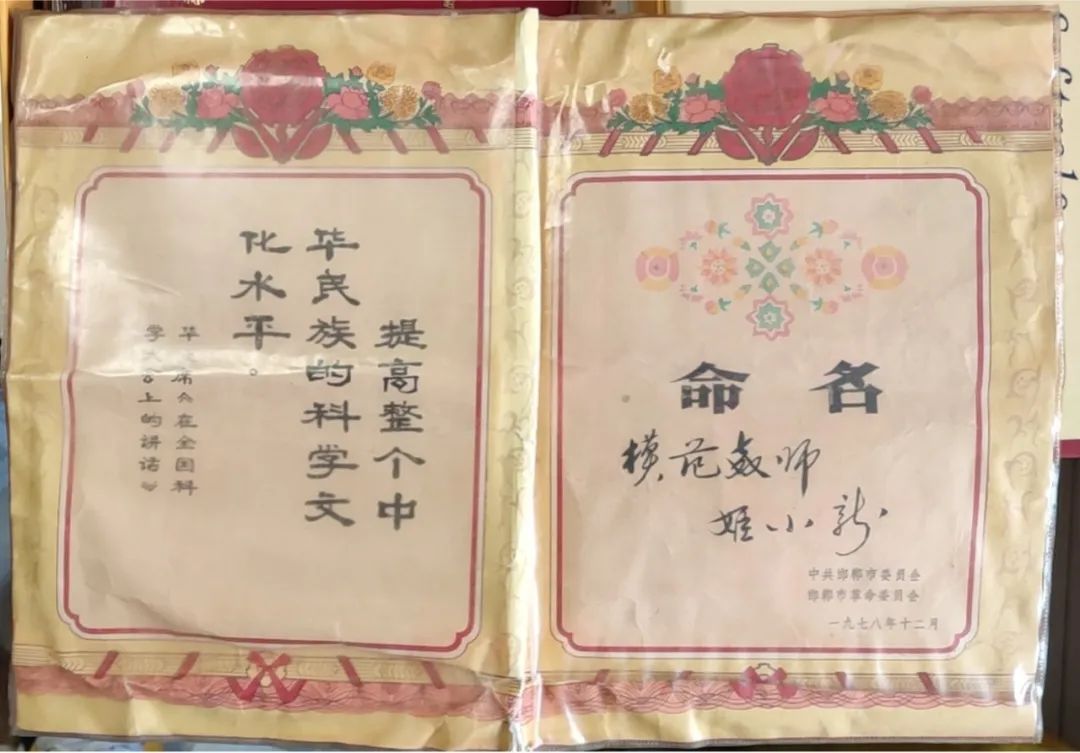 提高整个中
华民族的科学文
化水平。
华主席《在全国科
学大会上的讲话》
命名
模范教师
姬小
中共邯郸市委员会
邯郸市革命委员会
一九七八年十二月